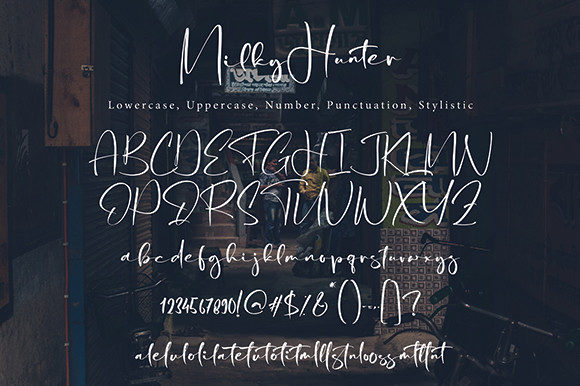 Milky Hunter
Lowercase, Uppercase, Number, Punctuation, Stylistic
ABCDEFGHIJKLMN
OPQRSTUVWXYZ
abcdefghijklmnopqrstuvwxyz
1234567890!@#$%&*()-.,[]?